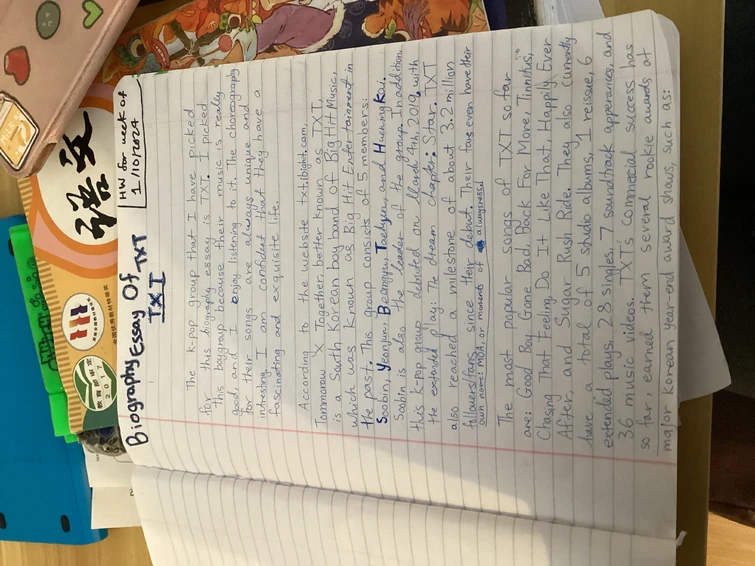 HW for week of
1/10/2024
Biography Essay Of
TXT TXT
The k-pop group that I have picked
for this biography essay is TXT. I picked
this boygroup because their music is really
good, and I enjoy listening to it. The choreography
for their songs are always unique and
intresting. I am confident that they have a
fascinating and exquisite life.
According to the website txt.ibighit.com,
Tommorow X Together, better known as TXT,
is a South Korean boy band of Big Hit Music,
which was known as Big Hit Entertainment in
the past. This group consists of 5 members:
Soobin, Yeonjun, Beomgyu, Taehyun, and Huening Kai.
Soobin is also the leader of the group. In addition,
this k-pop group debuted on March 4th, 2019, with
the extended play: The dream chapter: Star. TXT
also reached a milestone of about 3.2 million
followers/fans since their debut. Their fans even have their
own name: MOA, or moments of alwaysness.
The most popular songs of TXT so far
are: Good Boy Gone Bad, Back For More, Tinnitus,
Chasing That Feeling, Do It Like That, Happily Ever
After, and Sugar Rush Ride. They also currently
have a total of 5 studio albums, 1 reissue, 6
extended plays, 28 singles, 7 soundtrack apperances, and
36 music videos. TXTs commercial success has
so far, earned them several rookie awards at
major Korean year-end award shows, such as:
语文
教育部审定
2017